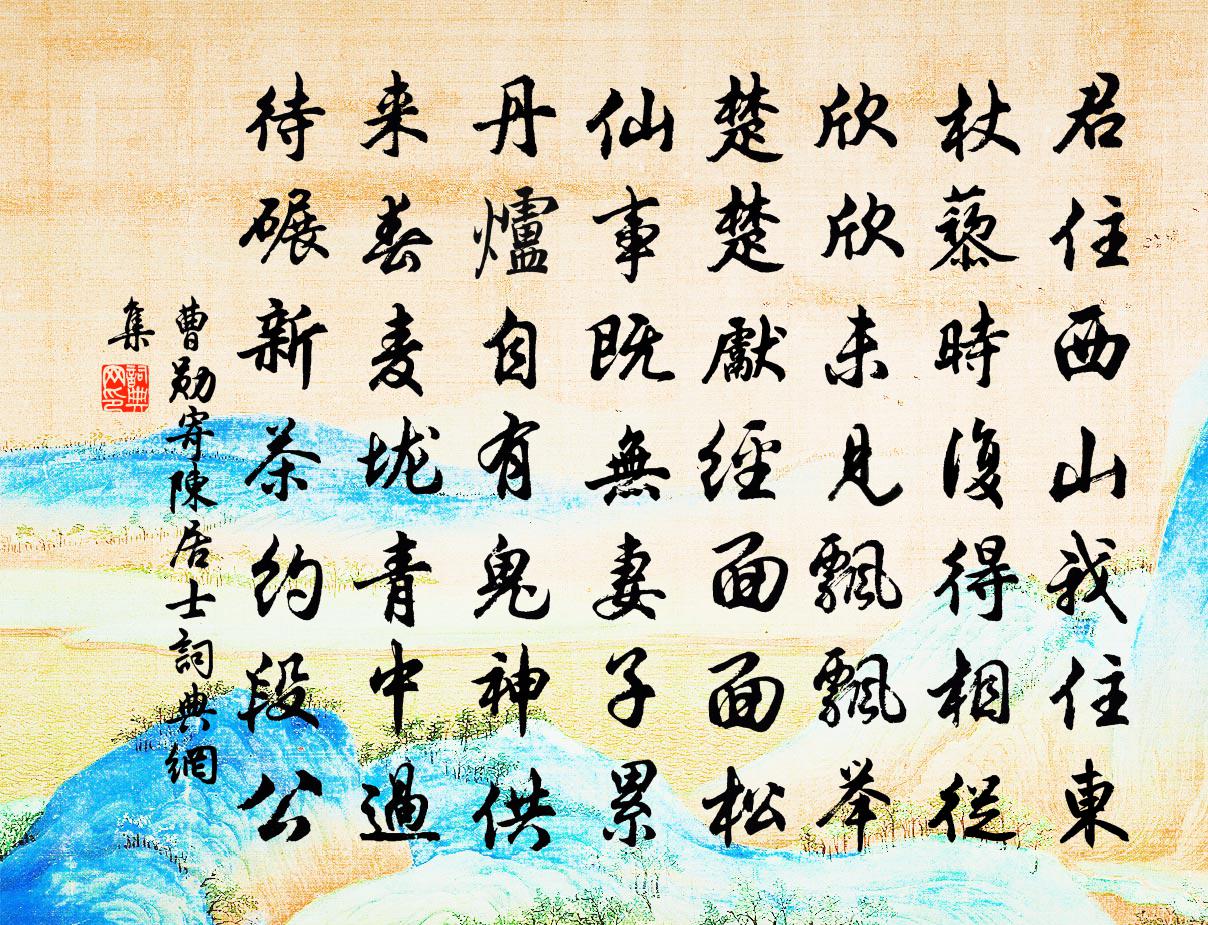 君住西山我住東
杖藜時復得相從
欣欣未見飄飄举
楚楚獻經面面松
仙事既無妻子累
丹爐自有鬼神供
来春麦垅青中過
待碾新茶約段公
曹勛寄陳居士詞典網
集
詞典网印